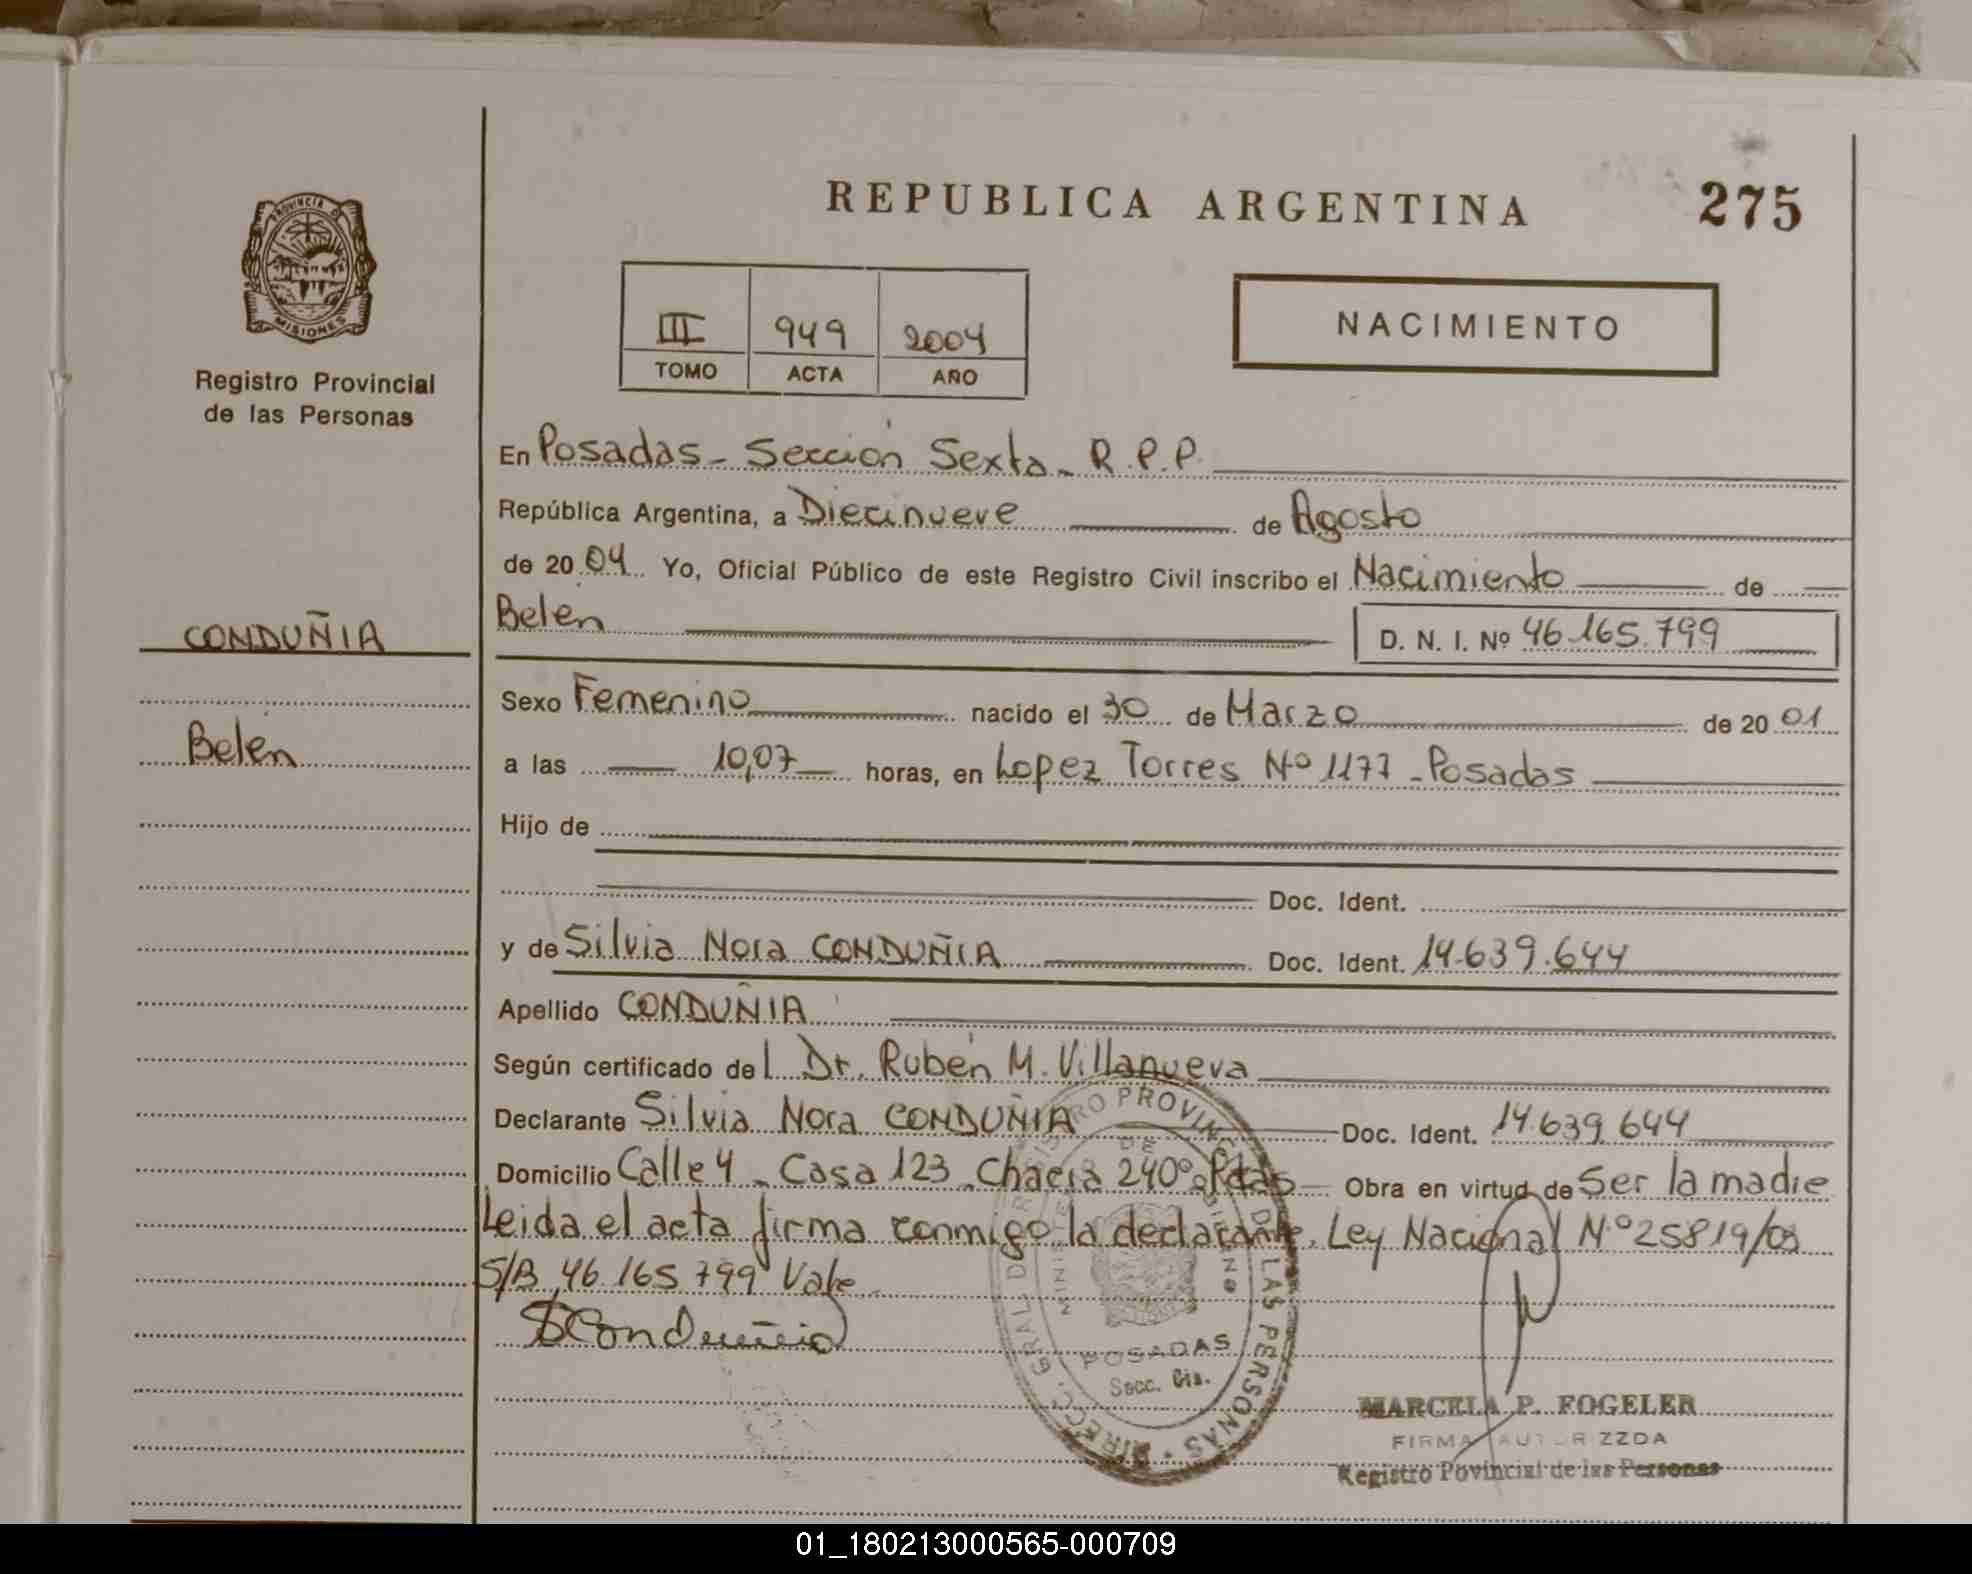 PROVINCIA D
MISIONES
Registro Provincial
de las Personas
CONDUÑIA
Belén
REPUBLICA ARGENTINA
275
III 949 2004
TOMO ACTA AÑO
NACIMIENTO
En Posadas - Sección Sexta - R.P.P.
República Argentina, a Diecinueve de Agosto
de 20 04 Yo, Oficial Público de este Registro Civil inscribo el Nacimiento de
Belén D. N. I. Nº 46.165.799
Sexo Femenino nacido el 30 de Marzo de 20 01
a las 10,07 horas, en Lopez Torres Nº 1177 - Posadas
Hijo de
Doc. Ident.
y de Silvia Nora CONDUÑIA Doc. Ident. 14.639.644
Apellido CONDUÑIA
Según certificado del Dr. Rubén M. Villanueva
Declarante Silvia Nora CONDUÑIA Doc. Ident. 14.639.644
Domicilio Calle 4 - Casa 123 - Chacra 240º Pdas Obra en virtud de Ser la madre
Leida el acta firma conmigo la declarante. Ley Nacional Nº 25819/03
S/B 46.165.799 Vale
SConduñia
DIRECC. GRAL. DE REGISTRO PROVINCIAL DE LAS PERSONAS
MINISTERIO DE GOBIERNO
POSADAS
Secc. 6ta.
MARCELA P. FOGELER
FIRMA AUTORIZZDA
Registro Povincial de las Personas
01_180213000565-000709